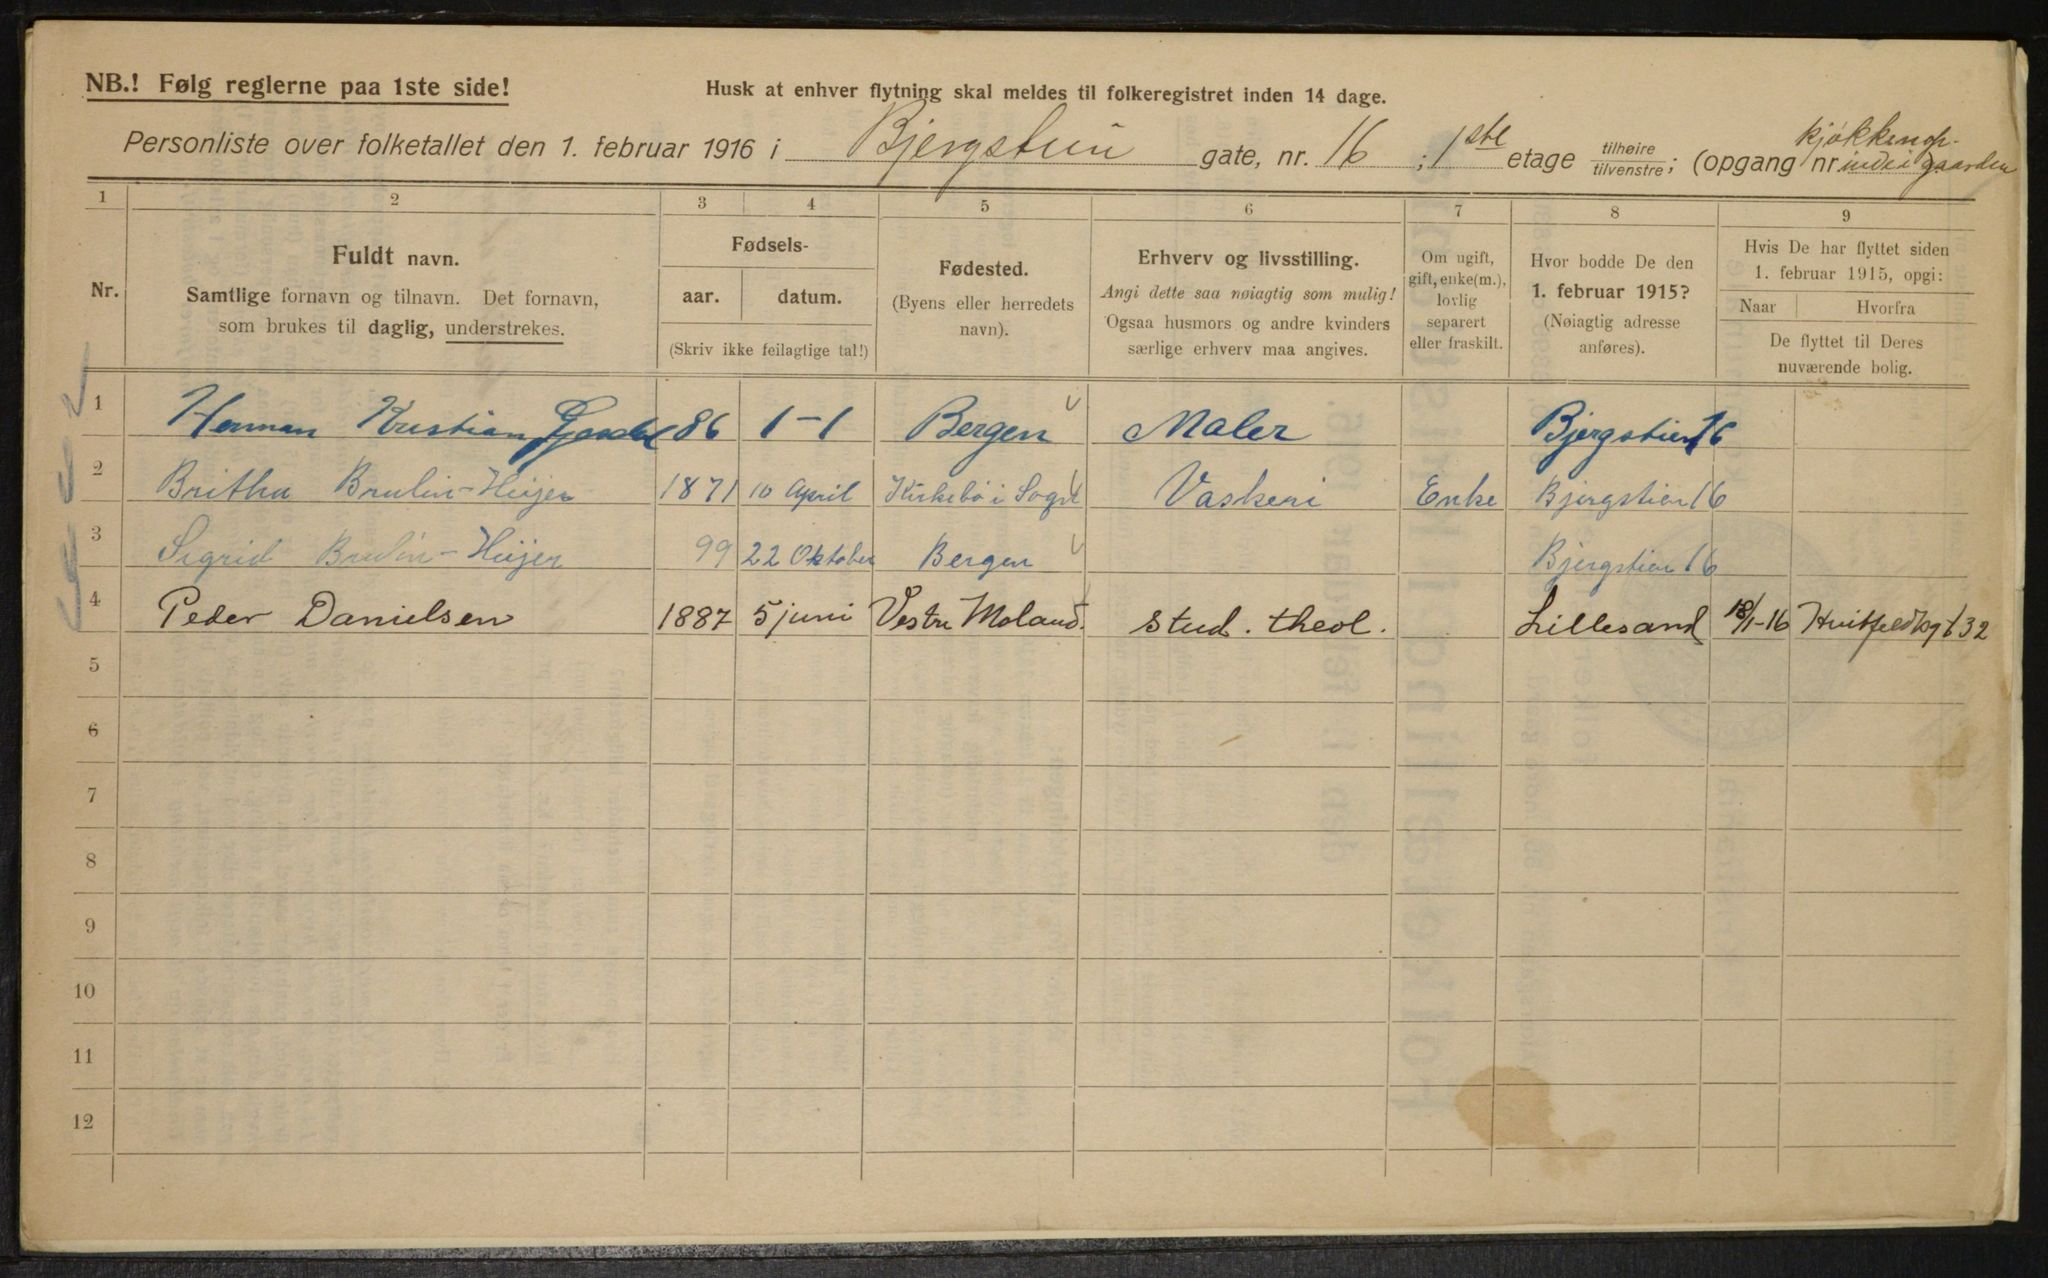 NB.! Følg reglerne paa 1ste side!
Husk at enhver flytning skal meldes til folkeregistret inden 14 dage.
Personliste over folketallet den 1. februar 1916 i Bjergstien gate, nr. 16 ; 1ste etage tilhøire tilvenstre ; (opgang nr. inde i gaarden
kjøkkenop-
1 2 3 4 5 6 7 8 9
Nr.
Fuldt navn.
Samtlige fornavn og tilnavn. Det fornavn,
som brukes til daglig, understrekes.
Fødsels-
aar. datum.
(Skriv ikke feilagtige tal!)
Fødested.
(Byens eller herredets
navn).
Erhverv og livsstilling.
Angi dette saa nøiagtig som mulig!
Ogsaa husmors og andre kvinders
særlige erhverv maa angives.
Om ugift,
gift, enke(m.),
lovlig
separert
eller fraskilt.
Hvor bodde De den
1. februar 1915?
(Nøiagtig adresse
anføres).
Hvis De har flyttet siden
1. februar 1915, opgi:
Naar Hvorfra
De flyttet til Deres
nuværende bolig.
1 Herman Kristian 86 1-1 Bergen Maler Bjergstien 16
2 Britha Brulin-Heijer 1871 10 April Kirkebö i Sogn Vaskeri Enke Bjergstien 16
3 Sigrid Brulin-Heijer 99 22 Oktober Bergen Bjergstien 16
4 Peder Danielsen 1887 5 juni Vestre Moland. stud. theol. Lillesand 18/1-16 Hvitfeldtsgt 32
5
6
7
8
9
10
11
12